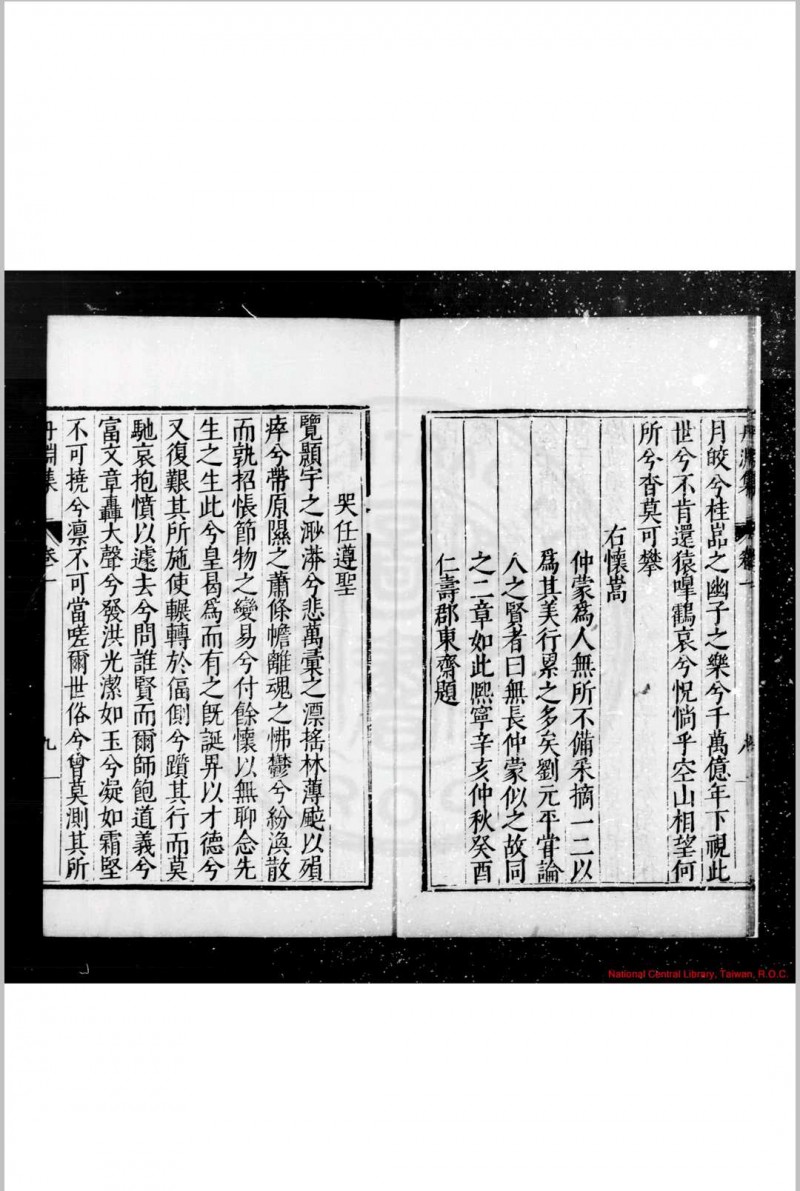 月皎兮桂嵓之幽子之樂兮千萬億年下視此
世兮不肯還猿嘷鶴哀兮怳惝乎空山相望何
所兮杳莫可攀
右懷嵩
仲蒙為人無所不備采摘一二以
為其美行累之多矣劉元平甞論
人之賢者曰無長仲蒙似之故同
之二章如此熈寧辛亥仲秋癸酉
仁壽郡東齋題
哭任遵聖
覽顥宇之渺漭兮悲萬彙之漂搖林薄颴以殞
瘁兮帶原隰之蕭條幨離魂之怫鬱兮紛渙散
而孰招悵節物之變易兮付餘懷以無聊念先
生之生此兮皇曷為而有之旣誕畀以才德兮
又復艱其所施使輾轉於偪側兮躓其行而莫
馳哀抱憤以遽去兮問誰賢而爾師飽道義兮
富文章轟大聲兮發洪光潔如玉兮凝如霜堅
不可撓兮凛不可當嗟爾世俗兮曾莫測其所
丹淵集
卷一
九
National Central Library, Taiwan, R.O.C.